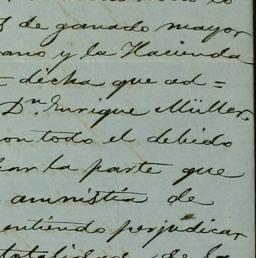 de ganado mayor
y la Hacienda
= dicha que ad=
Dn. Enrique Müller,
con todo el debido
la parte que
amnistía de
entiendo perjudicar
de la